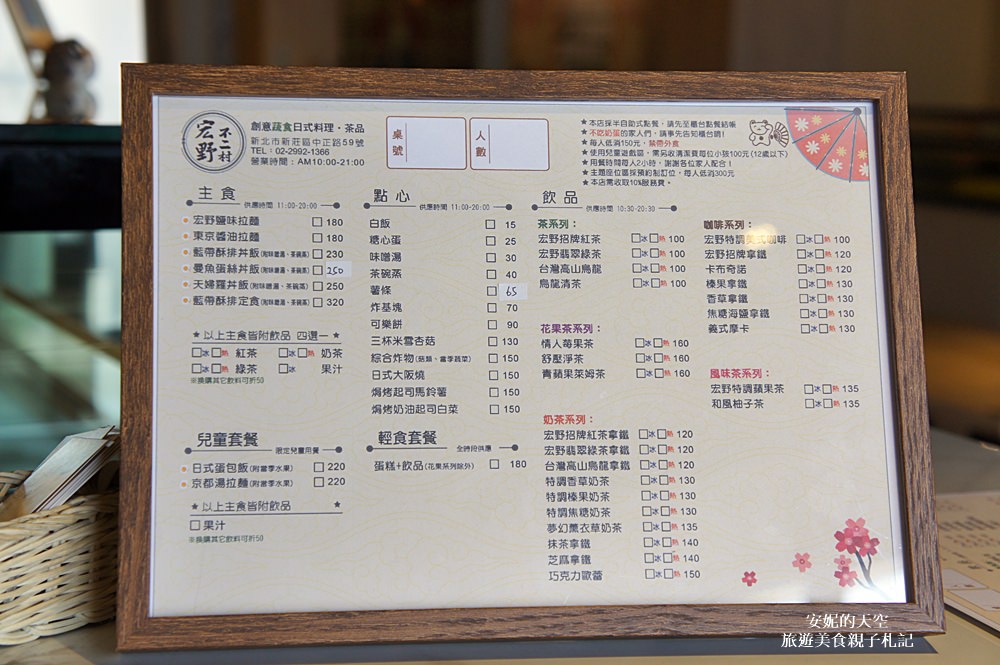 宏野
不二村
創意蔬食日式料理・茶品
新北市新莊區中正路59號
TEL：02-2992-1366
營業時間：AM10:00-21:00
桌號
人數
★本店採半自助式點餐，請先至櫃台點餐結帳
★不吃奶蛋的家人們，請事先告知櫃台唷！
★每人低消150元，禁帶外食
★使用兒童遊戲區，需另收清潔費每位小孩100元(12歲以下)
★用餐時間每人2小時，謝謝各位家人配合！
★主題座位區採預約制訂位，每人低消300元
★本店需收取10%服務費。
主食
供應時間 11:00-20:00
宏野鹽味拉麵 □ 180
東京醬油拉麵 □ 180
藍帶酥排丼飯(附味噌湯、茶碗蒸) □ 230
曼魚蛋絲丼飯(附味噌湯、茶碗蒸) □ 250
天婦羅丼飯(附味噌湯、茶碗蒸) □ 250
藍帶酥排定食(附味噌湯、茶碗蒸) □ 320
★以上主食皆附飲品 四選一 ★
□冰□熱 紅茶 □冰□熱 奶茶
□冰□熱 綠茶 □冰 果汁
※換購其它飲料可折50
兒童套餐
限定兒童用餐
日式蛋包飯(附當季水果) □ 220
京都湯拉麵(附當季水果) □ 220
★以上主食皆附飲品 ★
□果汁
※換購其它飲料可折50
點心
供應時間 11:00-20:00
白飯 □ 15
糖心蛋 □ 25
味噌湯 □ 30
茶碗蒸 □ 40
薯條 □ 65
炸基塊 □ 70
可樂餅 □ 90
三杯米雪杏菇 □ 130
綜合炸物(菇類、當季蔬菜) □ 150
日式大阪燒 □ 150
焗烤起司馬鈴薯 □ 150
焗烤奶油起司白菜 □ 150
輕食套餐
全時段供應
蛋糕+飲品(花果茶系列除外) □ 180
飲品
供應時間 10:30-20:30
茶系列：
宏野招牌紅茶 □冰□熱 100
宏野翡翠綠茶 □冰□熱 100
台灣高山烏龍 □冰□熱 100
烏龍清茶 □冰□熱 100
花果茶系列：
情人莓果茶 □冰□熱 160
舒壓淨茶 □冰□熱 160
青蘋果萊姆茶 □冰□熱 160
奶茶系列：
宏野招牌紅茶拿鐵 □冰□熱 120
宏野翡翠綠茶拿鐵 □冰□熱 120
台灣高山烏龍拿鐵 □冰□熱 120
特調香草奶茶 □冰□熱 130
特調榛果奶茶 □冰□熱 130
特調焦糖奶茶 □冰□熱 130
夢幻薰衣草奶茶 □冰□熱 135
抹茶拿鐵 □冰□熱 140
芝麻拿鐵 □冰□熱 140
巧克力歐蕾 □冰□熱 150
咖啡系列：
宏野特調美式咖啡 □冰□熱 100
宏野招牌拿鐵 □冰□熱 120
卡布奇諾 □冰□熱 120
榛果拿鐵 □冰□熱 130
香草拿鐵 □冰□熱 130
焦糖海鹽拿鐵 □冰□熱 130
義式摩卡 □冰□熱 130
風味茶系列：
宏野特調蘋果茶 □冰□熱 135
和風柚子茶 □冰□熱 135
安妮的天空
旅遊美食親子札記